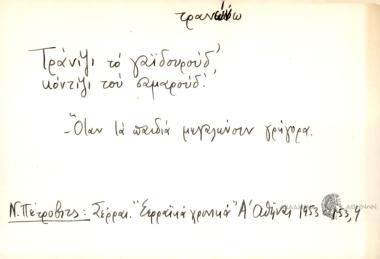 τρανώνω
Τράνιξι τό γαϊδουρούδ'
κόντιξι τού σαμαρούδ'.
- Ὅταν τά παιδιά μεγαλώνουν γρήγορα.
Ν. Πέτροβιτς: Σέρραι. "Σερραϊκά χρονικά" Α' Ἀθῆναι 1953 σ. 153, 4